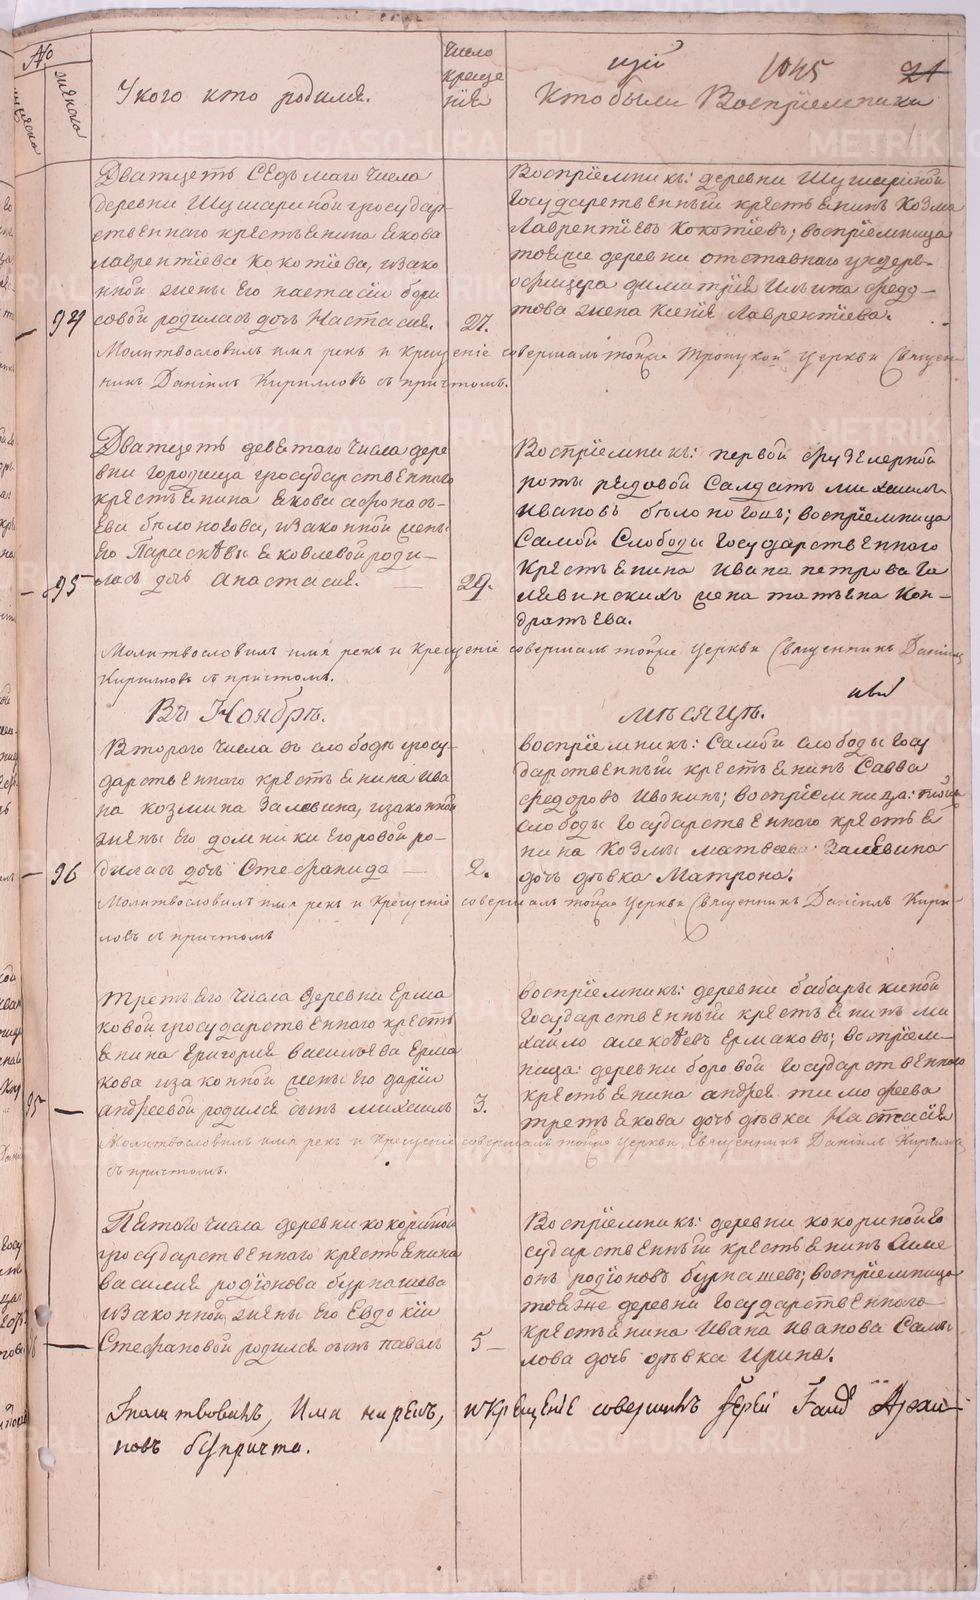 №
мужеска
женска
У кого кто родился.
Число
креще
нїя
щїй
1045
21
Кто были Восприемники
Дватцеть Седьмаго числа
деревни Шушариной государ-
ственнаго крестьянина Якова
Лаврентїева Кокотїева, и зако
нной жены его Настасїи бори
совой родилась дочь Настасия.
94
27.
Воспрїемникъ: деревни Шушариной
государственный крестьянинъ Козма
Лаврентїевъ Кокотїевъ; воспрїемница
тояже деревни отставнаго ундеръ-
офицера димитрїя Ильина федо-
това жена Ксенїя Лаврентїева.
Молитвословилъ имя рекъ и Крещенїе совершалъ тояже Троицкой церкви Священ-
никъ Данїилъ Кирилловъ съ причтомъ.
Дватцеть девятаго числа дере
вни городища государственнаго
крестьянина Якова афонась-
ева белоногова, и законной жены
его Параскевы Яковлевой роди-
лась дочь Анастасия.
95
29.
Воспрїемникъ: первой фузелерной
роты рядовой Салдатъ михаилъ
Ивановъ белоноговъ; воспрїемница
Самой Слободы государственнаго
крестьянина Ивана петрова Га
лявинскихъ жена татьяна Кон-
дратьева.
Молитвословилъ имя рекъ и Крещенїе совершалъ тояже церкви Священникъ Данїилъ
Кирилловъ съ причтомъ.
Въ Ноябрѣ.
мѣсяцѣ.
Втораго числа въ слободѣ госу-
дарственнаго крестьянина Ива
на козмина Залевина, и законной
жены его домники егоровой ро-
дилась дочь Стефанида
96
2.
воспрїемникъ: Самой слободы госу
дарственный крестьянинъ Савва
федоровъ Ивонинъ; воспрїемница: тойже
слободы государственнаго крестья
нина Козмы матвеева Залевина
дочь дѣвка Матрона.
Молитвословилъ имя рекъ и Крещенїе совершалъ тояже церкви Священникъ Данїилъ Кирил-
ловъ съ причтомъ
третьяго числа деревни Ерма
ковой государственнаго кресть
янина григория васильева Ерма
кова и законной жены его дарїи
андреевой родился сынъ михаилъ
95
3.
воспрїемникъ: деревни бабарыкиной
государственный крестьянинъ ми
хайло алексѣевъ Ермаковъ; воспрїем-
ница: деревни боровой государственнаго
крестьянина андрея тимофеева
третьякова дочь дѣвка Настасїя
Молитвословилъ имя рекъ и Крещенїе совершалъ тояже церкви Священникъ Данїилъ Кирилловъ
съ причтомъ.
Пятаго числа деревни кокориной
государственнаго крестьянина
василия родїонова бурнашева
и законной жены его Евдокїи
Стефановой родился сынъ павелъ
5
Воспрїемникъ: деревни кокориной го
сударственный крестьянинъ Симе
онъ родїоновъ бурнашевъ; воспрїемница
тояже деревни государственнаго
крестьянина Ивана Иванова Самы
лова дочь дѣвка Ирина.
молитвовавъ, Имя нарекъ, и крещенїе совершилъ Їерей
повъ безъ причта.
METRIKI.GASO-URAL.RU